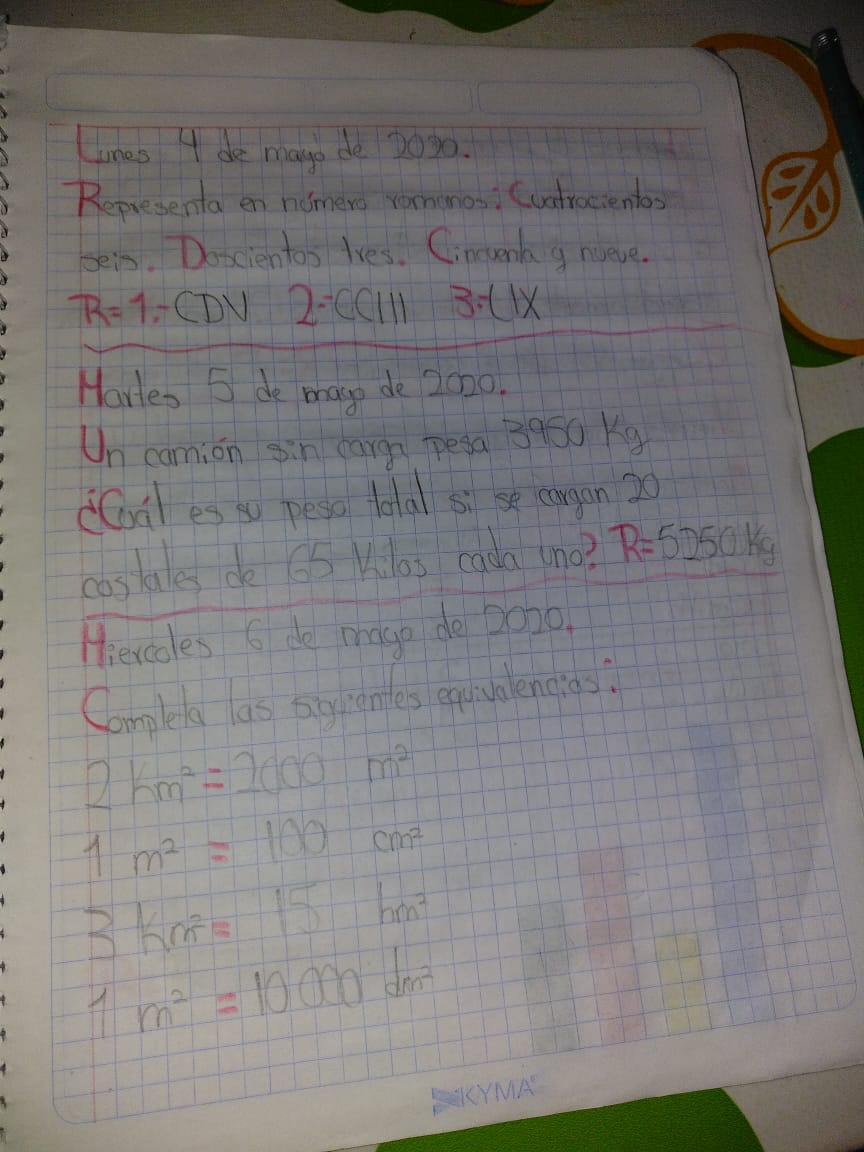 Lunes 4 de mayo de 2020.
Representa en número romanos: Cuatrocientos
seis. Doscientos tres. Cincuenta y nueve.
R= 1.- CDV 2.- CCIII 3.- LIX
Martes 5 de mayo de 2020.
Un camión sin carga pesa 3950 Kg
¿Cuál es su peso total si se cargan 20
costales de 65 Kilos cada uno? R= 5250 Kg
Miercoles 6 de mayo de 2020.
Completa las siguientes equivalencias:
2 Km² = 2000 m²
1 m² = 100 cm²
3 Km² = 15 hm²
1 m² = 10 000 dm²
KYMA